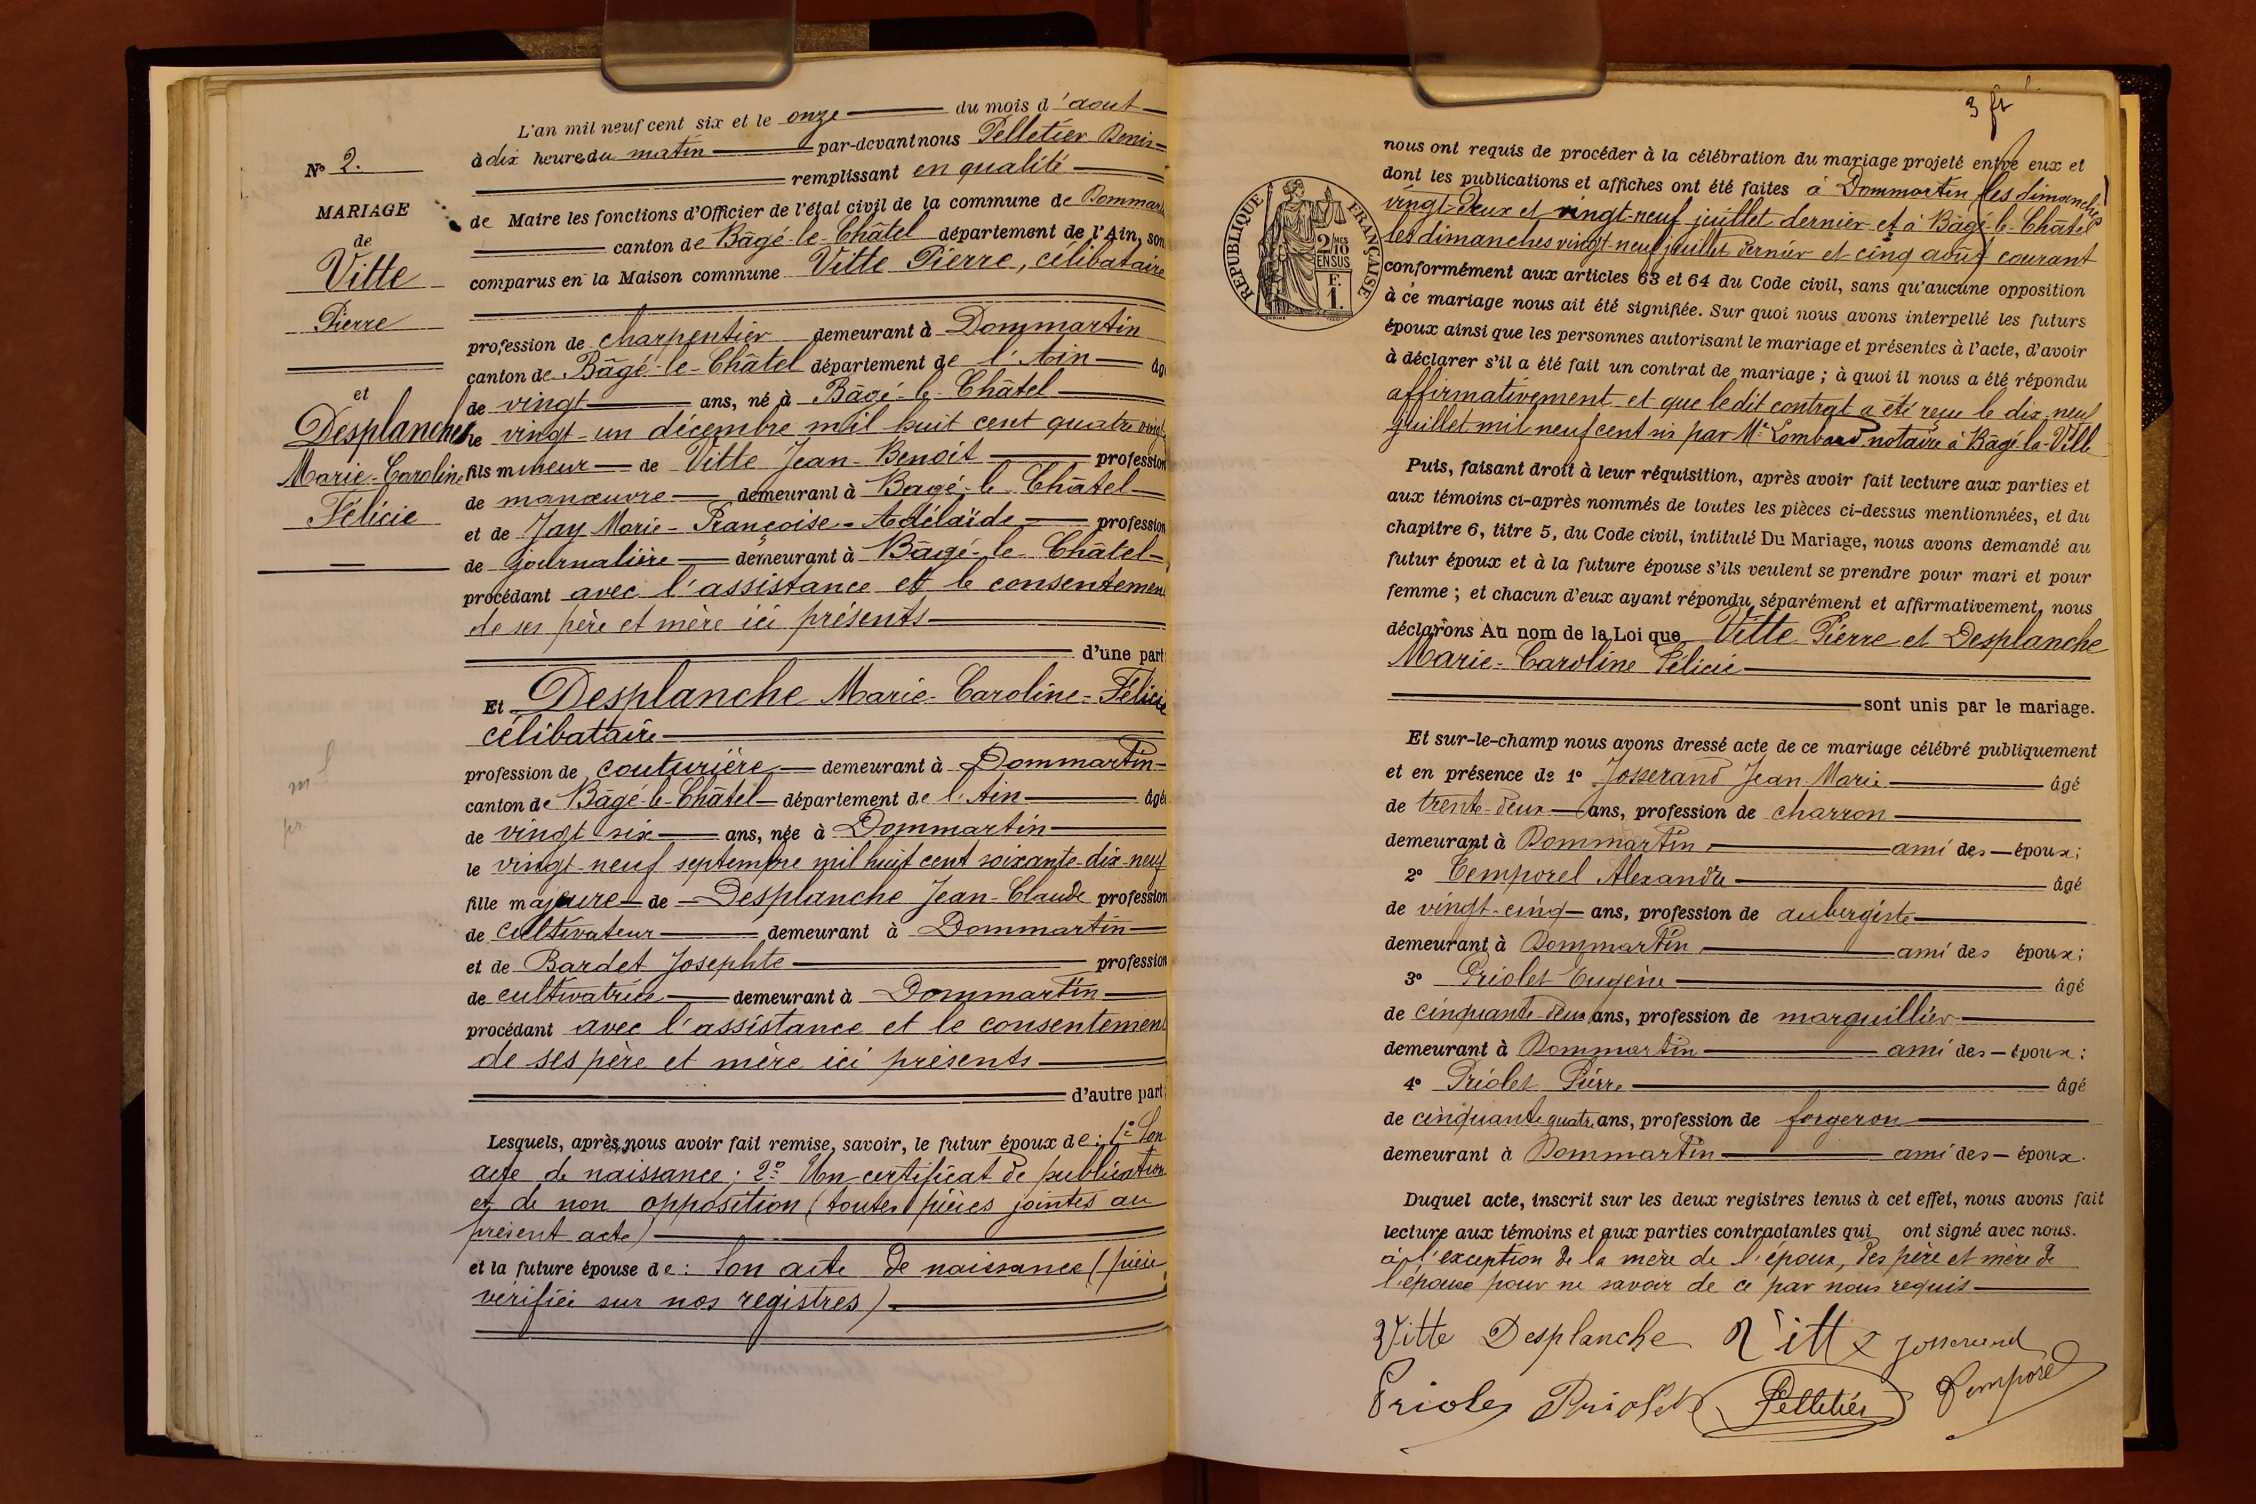 L'an mil neuf cent six et le onze du mois d'aout
à dix heures du matin par-devant nous Pelletier Denis
remplissant en qualité
de Maire les fonctions d'Officier de l'état civil de la commune de Dommart
canton de Bâgé-le-Châtel département de l'Ain, son
comparus en la Maison commune Vitte Pierre, célibataire
profession de charpentier demeurant à Dommartin
canton de Bâgé-le-Châtel département de l'Ain âg
de vingt ans, né à Bâgé-le-Châtel
le vingt-un décembre mil huit cent quatre vingt
fils mineur de Vitte Jean-Benoit profession
de manœuvre demeurant à Bagé-le-Châtel
et de Jay Marie-Françoise-Adélaïde profession
de journalière demeurant à Bâgé-le-Châtel
procédant avec l'assistance et le consentemen
de ses père et mère ici présents
d'une part
Et Desplanche Marie-Caroline-Félicie
célibataire
profession de couturière demeurant à Dommartin
canton de Bâgé-le-Châtel département de l'Ain âgé
de vingt six ans, née à Dommartin
le vingt-neuf septembre mil huit cent soixante-dix-neuf
fille majeure de Desplanche Jean-Claude profession
de cultivateur demeurant à Dommartin
et de Bardet Josephte profession
de cultivatrice demeurant à Dommartin
procédant avec l'assistance et le consentement
de ses père et mère ici présents
d'autre part
Lesquels, après nous avoir fait remise, savoir, le futur époux de : 1° Son
acte de naissance ; 2° Un certificat de publication
et de non opposition (toutes pièces jointes au
présent acte)
et la future épouse de : Son acte de naissance (pièce
vérifiée sur nos registres)
N° 2.
MARIAGE
de
Vitte
Pierre
et
Desplanche
Marie-Caroline
Félicie
3 ft
RÉPUBLIQUE FRANÇAISE
2/10
EN SUS
F.
1.
nous ont requis de procéder à la célébration du mariage projeté entre eux et
dont les publications et affiches ont été faites à Dommartin les dimanches
vingt-deux et vingt-neuf juillet dernier et à Bâgé-le-Châtel
les dimanches vingt-neuf juillet dernier et cinq août courant
conformément aux articles 63 et 64 du Code civil, sans qu'aucune opposition
à ce mariage nous ait été signifiée. Sur quoi nous avons interpellé les futurs
époux ainsi que les personnes autorisant le mariage et présentes à l'acte, d'avoir
à déclarer s'il a été fait un contrat de mariage ; à quoi il nous a été répondu
affirmativement et que ledit contrat a été reçu le dix neuf
juillet mil neuf cent six par Me Lombard notaire à Bâgé-la-Ville
Puis, faisant droit à leur réquisition, après avoir fait lecture aux parties et
aux témoins ci-après nommés de toutes les pièces ci-dessus mentionnées, et du
chapitre 6, titre 5, du Code civil, intitulé Du Mariage, nous avons demandé au
futur époux et à la future épouse s'ils veulent se prendre pour mari et pour
femme ; et chacun d'eux ayant répondu séparément et affirmativement, nous
déclarons Au nom de la Loi que Vitte Pierre et Desplanche
Marie-Caroline Félicie
sont unis par le mariage.
Et sur-le-champ nous avons dressé acte de ce mariage célébré publiquement
et en présence de 1° Josserand Jean-Marie âgé
de trente-deux ans, profession de charron
demeurant à Dommartin ami des époux ;
2° Temporel Alexandre âgé
de vingt-cinq ans, profession de aubergiste
demeurant à Dommartin ami des époux ;
3° Priolet Eugène âgé
de cinquante-deux ans, profession de marguillier
demeurant à Dommartin ami des époux ;
4° Priolet Pierre âgé
de cinquante quatre ans, profession de forgeron
demeurant à Dommartin ami des époux.
Duquel acte, inscrit sur les deux registres tenus à cet effet, nous avons fait
lecture aux témoins et aux parties contractantes qui ont signé avec nous.
à l'exception de la mère de l'époux, des père et mère de
l'épouse pour ne savoir de ce par nous requis
Vitte Desplanche Vitte Josserand
Priolet Priolet Pelletier Temporel